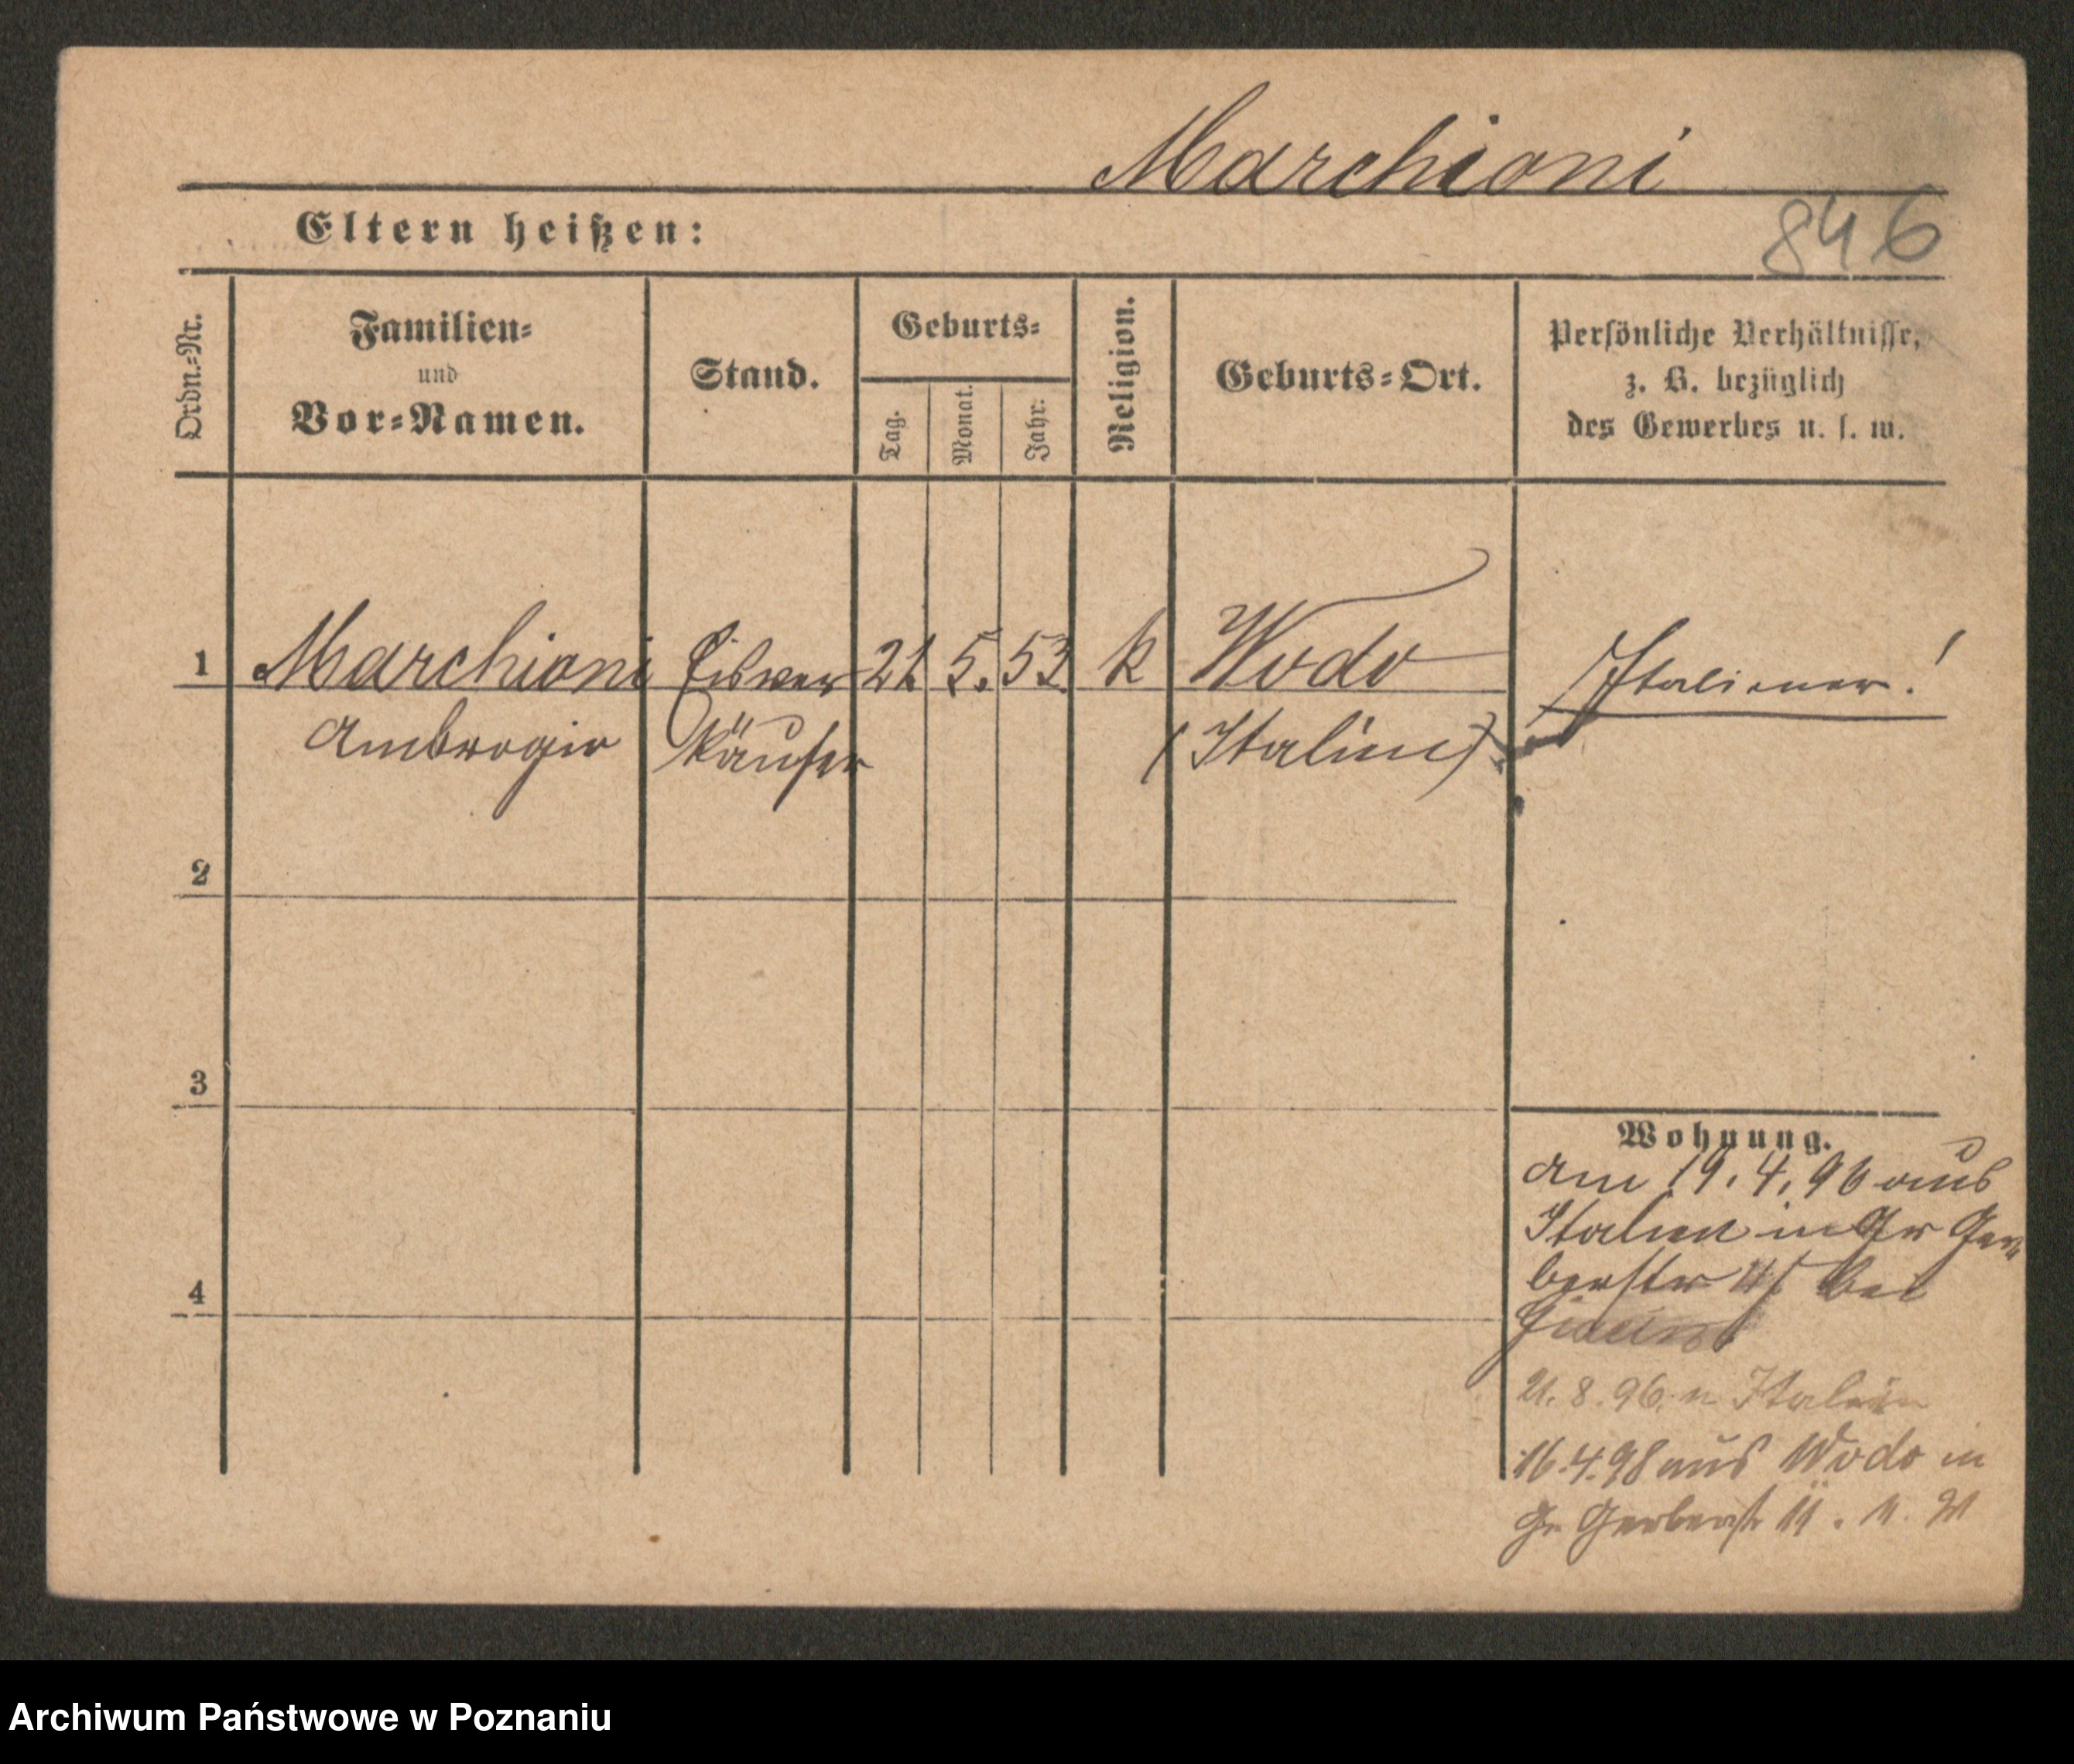 Marchioni
846
Eltern heißen:
Ordn.-Nr.
Familien-
und
Vor-Namen.
Stand.
Geburts-
Tag.
Monat.
Jahr.
Religion.
Geburts-Ort.
Persönliche Verhältnisse,
z. B. bezüglich
des Gewerbes u. s. w.
1 Marchioni Eisver 21 5. 53 k Wodo Italiener!
Ambrogio käufer (Italien)
2
3
4
Wohnung.
am 19.4.96 aus
Italien in Gr Ger
berstr 11 bei
21.8.96 n Italien
16.4.98 aus Wodo in
Gr Gerberstr 11.
Archiwum Państwowe w Poznaniu